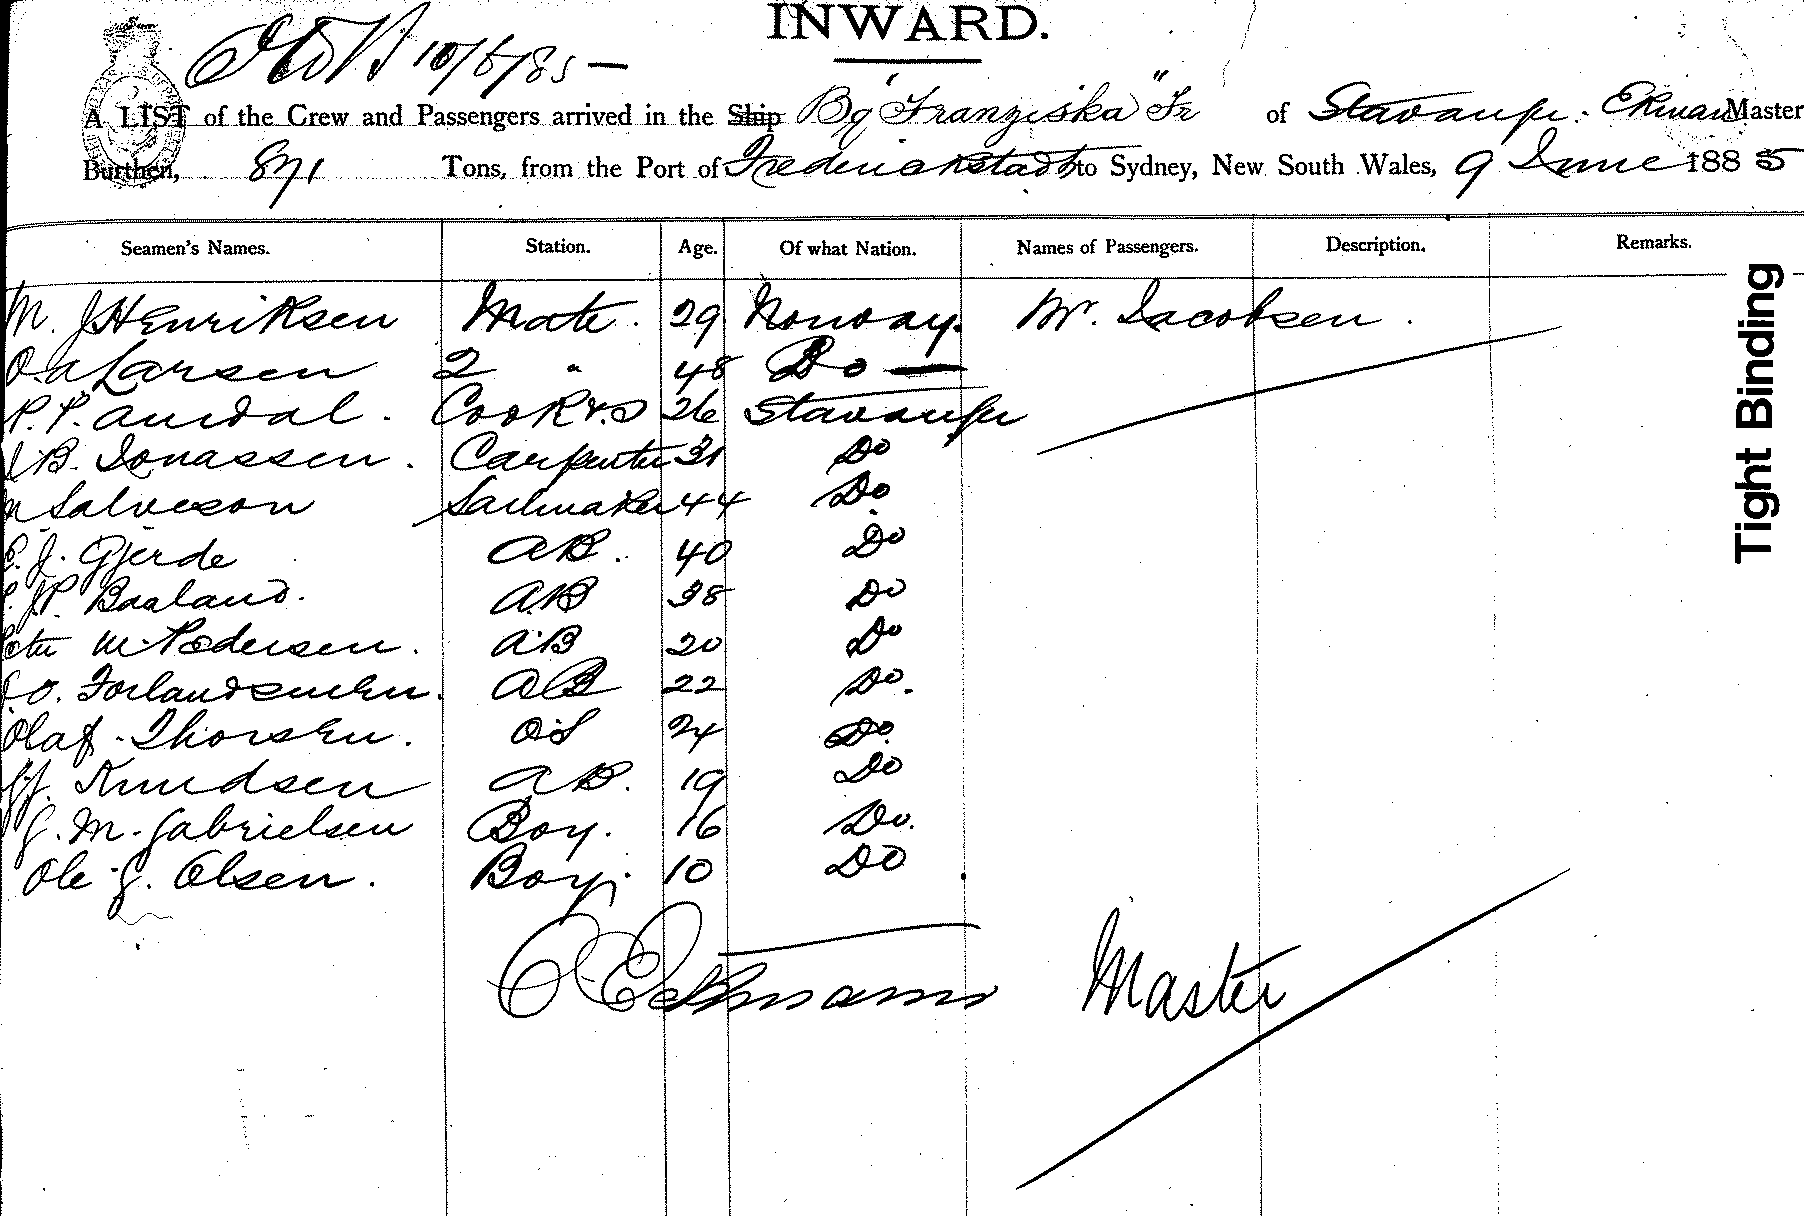 INWARD.
10/6/85 —
A LIST of the Crew and Passengers arrived in the Ship Bq "Franziska" of Stavanger. Ekman Master
Burthen, 871 Tons, from the Port of Frederickstadt to Sydney, New South Wales, 9 June 1885
Seamen's Names. Station. Age. Of what Nation. Names of Passengers. Description. Remarks.
M. J Henriksen Mate. 29 Norway. W. Jacobsen.
O. A Larsen 2 " 48 Do —
P. P. Aurdal. Cook & S 26 Stavanger
B. Jonassen. Carpenter 31 Do
Salveson Sailmaker 44 Do
J. Gjerde AB. 40 Do
J P. Baaland. AB 38 Do
Peter M. Pedersen. AB 20 Do
O. Forlandsmen. AB 22 Do.
Olaf Thorsen. OS 24 Do.
J. Knudsen AB. 19 Do
G. M. Gabrielsen Boy. 16 Do.
Ole G. Olsen. Boy. 10 Do
Master
Tight Binding